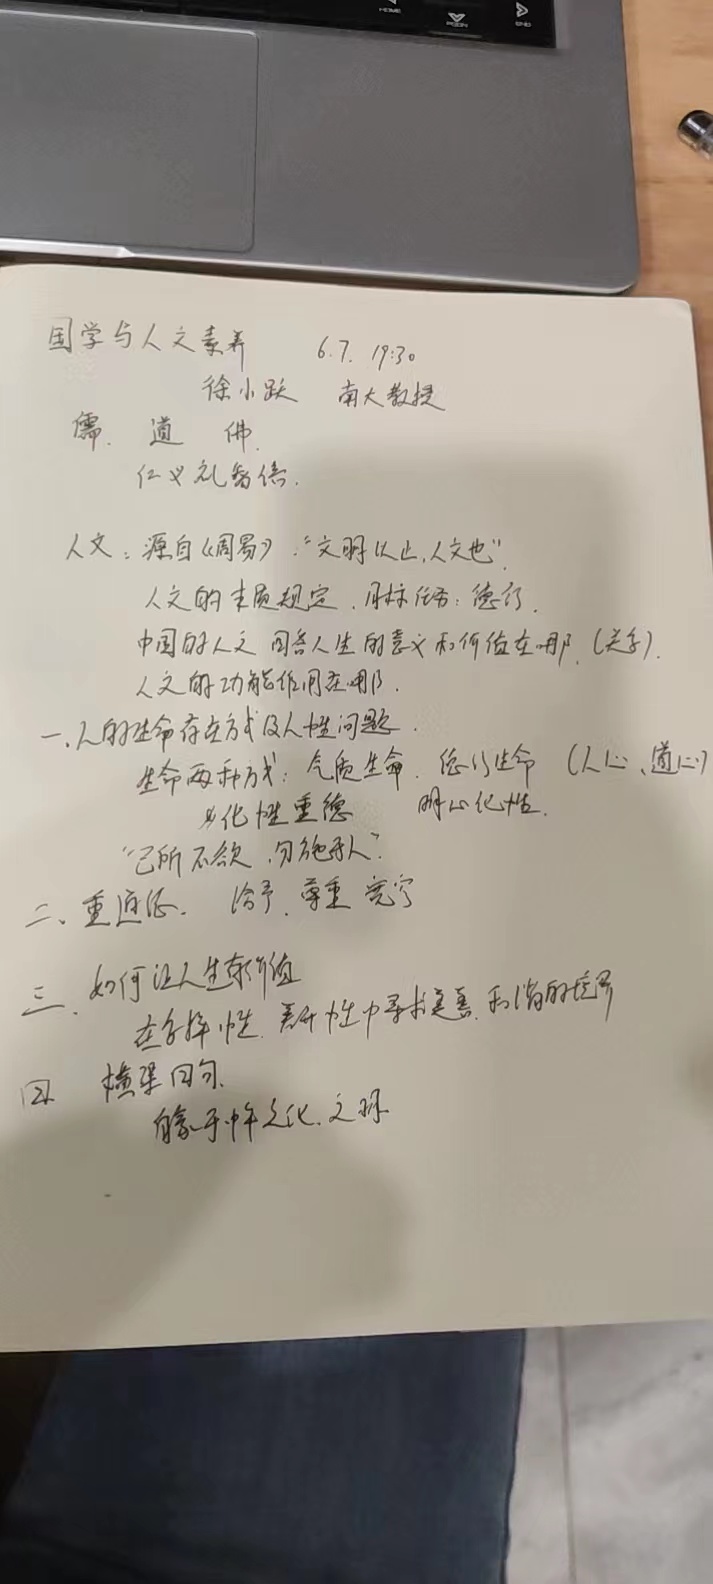 HOME
PGDN
END
国学与人文素养 6.7. 19:30
徐小跃 南大教授
儒. 道 佛.
仁义礼智信.
人文：源自《周易》."文明以止,人文也".
人文的本质规定.目标任务：德行.
中国的人文 回答人生的意义和价值在哪.(关乎).
人文的功能作用在哪.
一.人的生命存在方式及人性问题.
生命两种方式：气质生命.德行生命 (人心、道心)
化性重德 明心化性.
"己所不欲,勿施于人".
二、重道德. 给予.尊重 宽容
三. 如何让人生有价值
在 性. 性中寻求真善.和谐的境界
四 横渠四句.
自豪于中华文化.文明